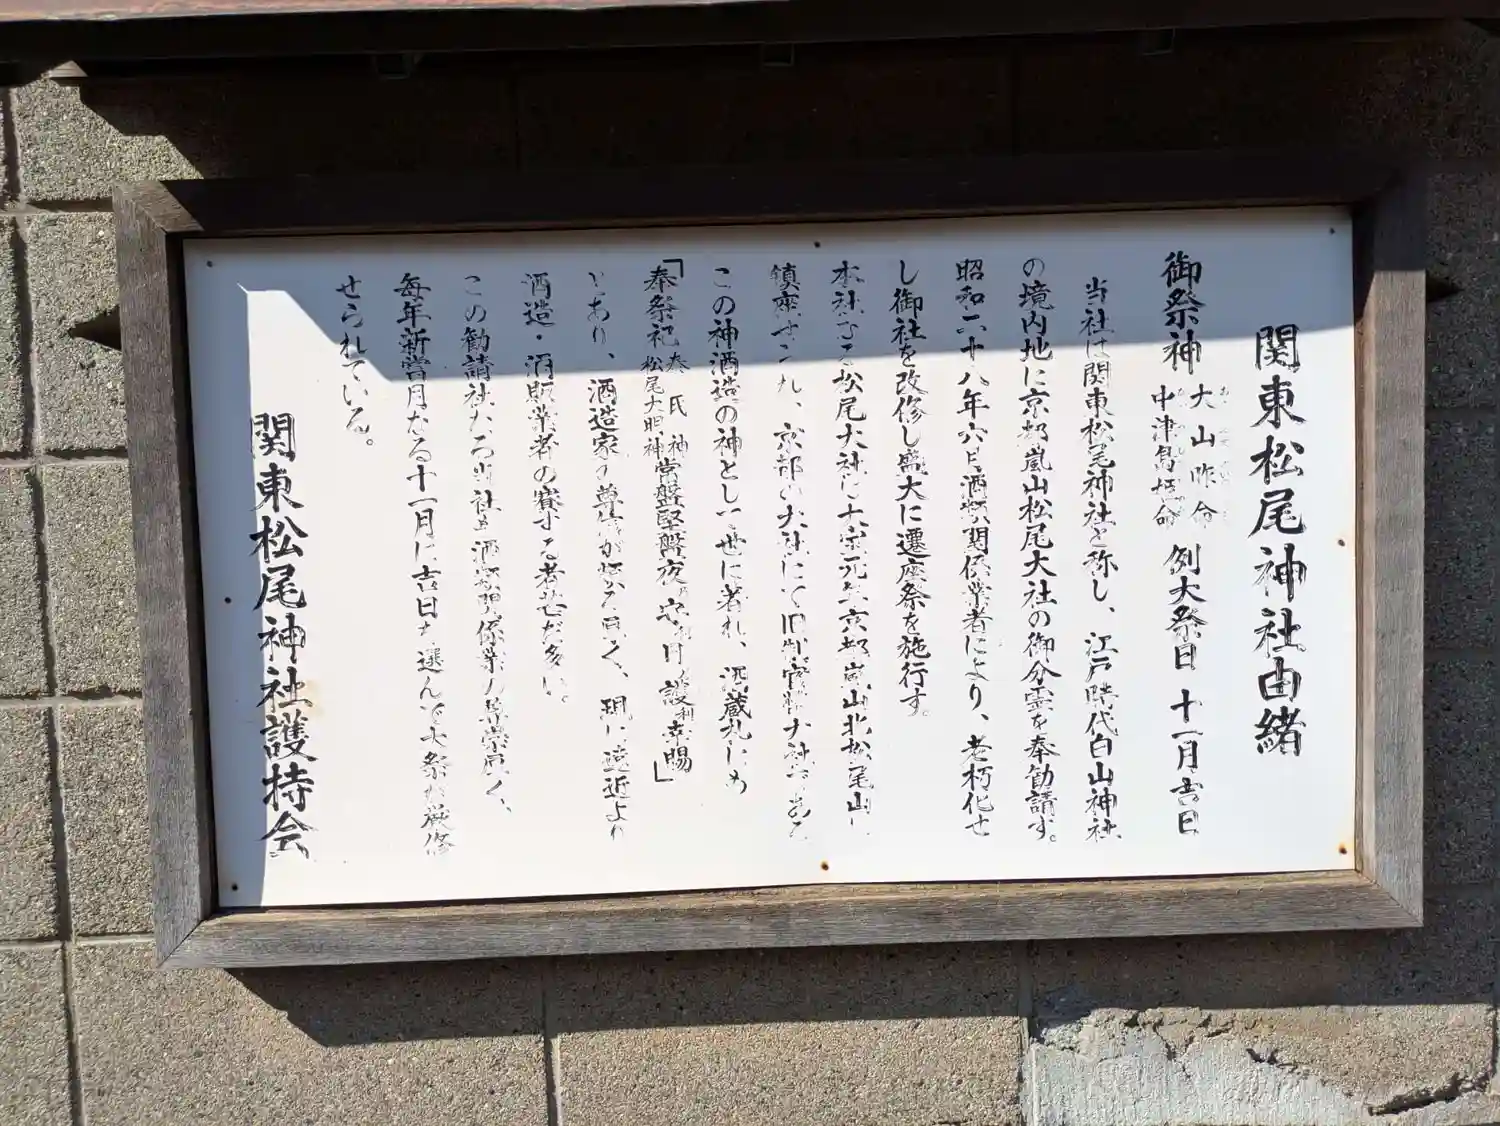 関東松尾神社由緒
御祭神 大山咋命 中津島姫命 例大祭日 十一月吉日
当社は関東松尾神社と称し、江戸時代白山神社
の境内地に京都嵐山松尾大社の御分霊を奉勧請す。
昭和六十八年六月酒類関係業者により、老朽化せ
し御社を改修し盛大に遷座祭を施行す。
本社なる松尾大社は大宝元年京都嵐山北松尾山に
鎮座され、京都の大社にて旧制官幣大社である
この神酒造の神として世に著れ、酒蔵札にも
「奉祭祀 秦氏神 松尾大明神 常盤堅盤夜 守日 護利幸賜」
とあり、酒造家の尊信が頗る厚く、現に遠近より
酒造・酒販業者の賽する者甚だ多い。
この勧請社たる当社も酒類関係業の尊崇厚く、
毎年新嘗月なる十一月に吉日を選んで大祭が厳修
せられている。
関東松尾神社護持会